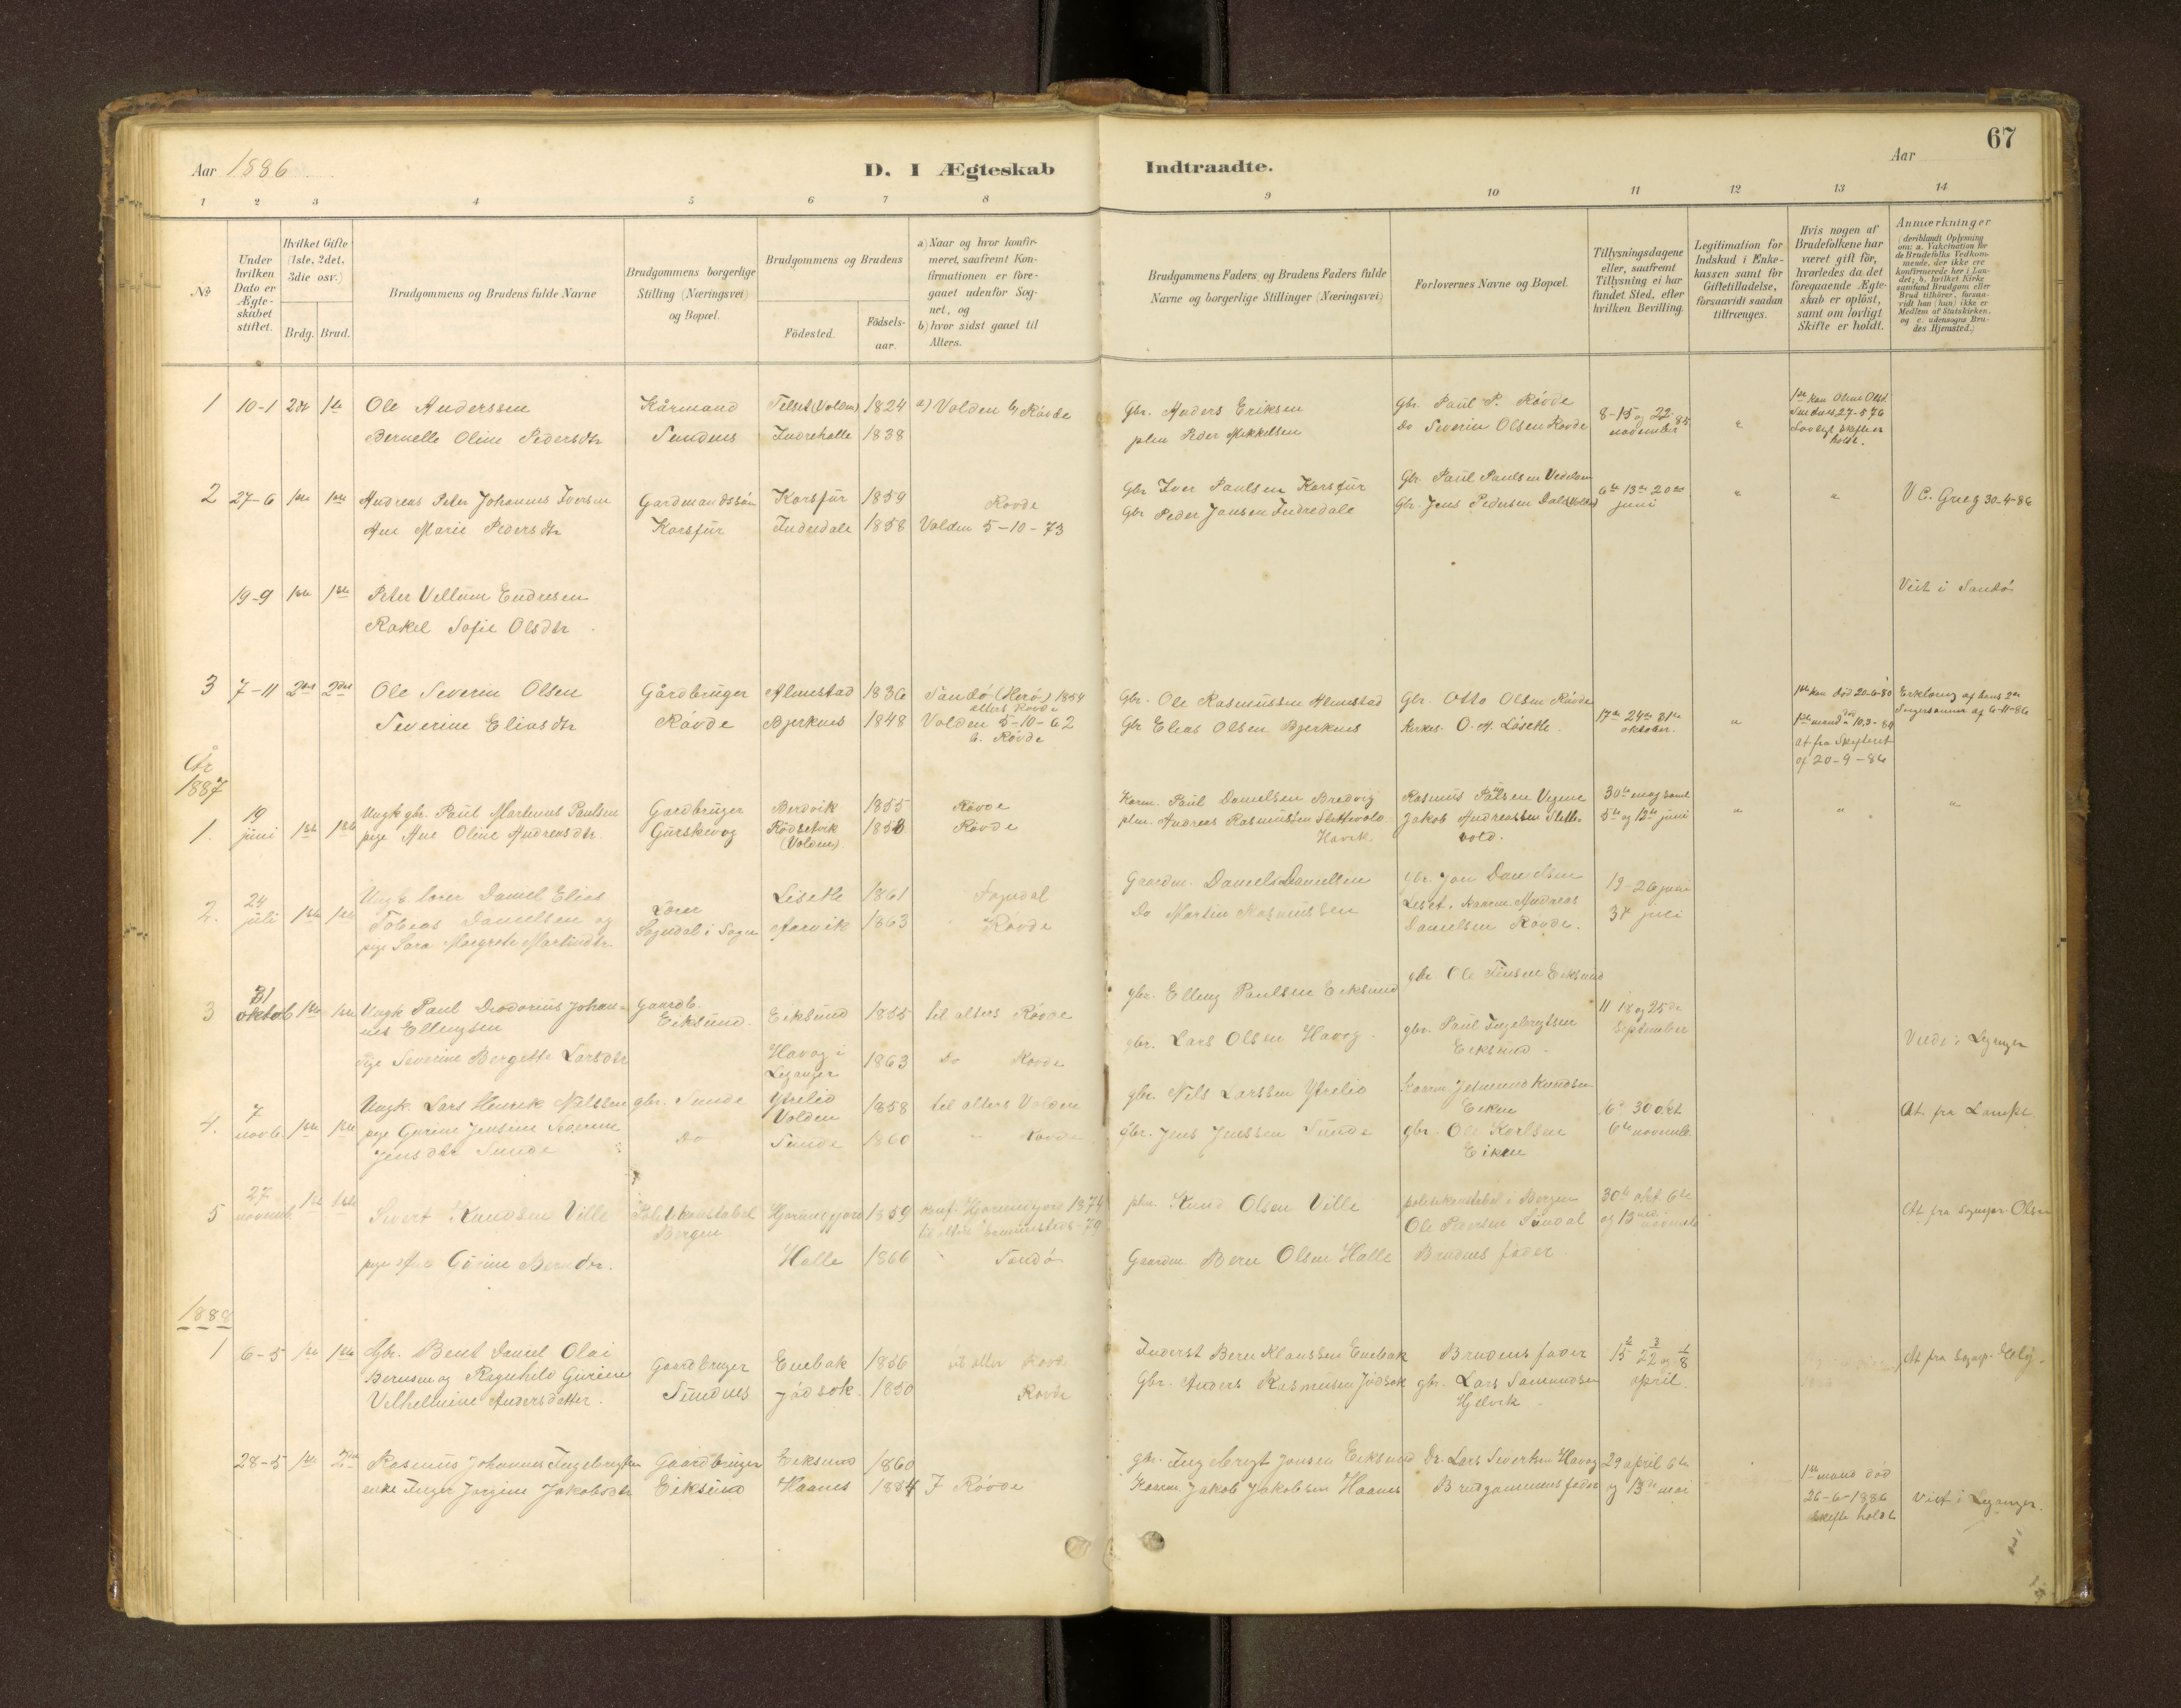 67
Aar 1886
D. I Ægteskab Indtraadte.
Aar
1 2 3 4 5 6 7 8 9 10 11 12 13 14
No
Under hvilken Dato er Ægteskabet stiftet.
Hvilket Gifte (1ste, 2det, 3die osv.)
Brdg. Brud.
Brudgommens og Brudens fulde Navne
Brudgommens borgerlige Stilling (Næringsvei) og Bopæl.
Brudgommens og Brudens
Födested.
Födsels-aar.
a) Naar og hvor konfirmeret, saafremt Konfirmationen er foregaaet udenfor Sognet, og
b) hvor sidst gaaet til Alters.
Brudgommens Faders og Brudens Faders fulde Navne og borgerlige Stillinger (Næringsvei)
Forlovernes Navne og Bopæl.
Tillysningsdagene eller, saafremt Tillysning ei har fundet Sted, efter hvilken Bevilling.
Legitimation for Indskud i Enkekassen samt for Giftetilladelse, forsaavidt saadan tiltrænges.
Hvis nogen af Brudefolkene har været gift för, hvorledes da det foregaaende Ægteskab er oplöst, samt om lovligt Skifte er holdt.
Anmærkninger
(deriblandt Oplysning om: a. Vakcination for de Brudefolks Vedkommende, der ikke ere konfirmerede her i Landet; b. hvilket Kirkesamfund Brudgom eller Brud tilhörer, forsaavidt han (hun) ikke er Medlem af Statskirken, og c. udensogns Brudes Hjemsted.)
1 10-1 2det 1ste Ole Anderssen Kårmand Telset (Volden) 1824 a) Volden b) Røvde Gbr. Anders Eriksen Gbr. Paul P. Røvde 8-15 og 22 85
Bernelle Oline Pedersdtr Sundnes Indrehalle 1838 plm Peder Mikkelsen Do Severin Olsen Rovde november
Sundnes 27-5 76
Lovligt skifte er holdt.
2 27-6 1ste 1ste Andreas Peter Johannes Iversen Gardmandssøn Korsfur 1859 Rovde Gbr Iver Paulsen Korsfur Gbr. Paul Paulsen 6te 13de 20de V C. Greg 30-4-86
Ane Marie Pedersdtr Korsfur Indredale 1858 Volden 5-10-73 Gbr Peder Jansen Indredale Gbr. Jens Pedersen juni
19-9 1ste 1ste Peter Vellum Endresen Viet i Sandø
Rakel Sofie Olsdtr
3 7-11 2det 2det Ole Severin Olsen Gårdbruger Almestad 1836 Sandø (Herø) 1854 Gbr. Ole Rasmussen Almestad Gbr. Otto Olsen Røvde
alters Røvde
Severine Eliasdtr Røvde Bjerknes 1848 Volden 5-10-62 Gbr Elias Olsen Bjerknes Kirkes. O. A. Løseth 17de 24de 31te oktober.
b. Røvde
1ste kon død 20-6-80
1ste mand død 10,3-80
At fra Skifteret
af 20-9-86
af 6-11-86
År
1887
1. 19 juni 1ste 1ste Ungk gbr. Paul Martinus Paulsen Gardbruger Berdvik 1855 Røvde Karm. Paul Danielsen Bredvig Rasmus 30te maj samt
pige Ane Oline Andreasdtr. Gurskevog Rødsetvik (Volden) 1858 Røvde plm. Andreas Rasmussen Slettevold Havik. Jakob Andreassen Slettevold. 5te og 12te juni
2. 24 juli 1ste 1ste Ungk. lærer Daniel Elias Lærer Liseth 1861 Sogndal Gaardm. Daniel Danielsen gbr. Jon Danielsen 19-26 juni
Tobias Danielsen og Sogndal i Sogn Aarvik 1863 Røvde Do Martin Rasmussen Andreas 3de juli
pige Sara Margrete Martindtr Danielsen Røvde.
3 31 oktob 1ste 1ste Ungk Paul Diodorius Johannes Ellingsen Gaardb. Eiksund. Eiksund 1855 til alters Røvde gbr. Elling Paulsen Eiksund gbr Ole Jensen Eiksund 11 18 og 25de September
pige Severine Bergitte Larsdtr Havog i Leganger 1863 Do Rovde gbr. Lars Olsen Havog gbr. Paul Ingebrigtsen Eiksund Viede i Leganger
4. 7 novb. 1ste 1ste Ungk. Lars Henrik Nilssen gbr. Sunde Ytrelid Volden 1858 til alters Volden gbr. Nils Larssen Ytrelid Knudsen Eiken 30 okt
pige Gurine Jensine Severine Do Sunde 1860 " Rovde gbr. Jens Jenssen Sunde gbr. Ole Karlsen Eiken 6te novemb.
Jensdtr Sunde
5 27 novemb. 1ste 1ste Sivert Knudsen Ville Politikonstabel Bergen Hjørundfjord 1859 konf. Hjørundfjord 1874 plm. Knud Olsen Ville politikonstabel i Bergen 30te okt 6te
79 Ole Pedersen og 13de novemb.
pige Ane Gurine Berndtr. Halle 1866 " Sandø Gaardm. Bern Olsen Halle Brudens fader At fra Sognepr. Olsen
1888
1 6-5 1ste 1ste Gbr. Bent Daniel Olai Gaardbruger Enebak 1856 til alter Røvde Inderst Bern Klaussen Enebak Brudens fader 15 22 og At fra Sognep.
Berntsen og Ragnhild Gurine Sundnes Jødsok 1850 Rovde Gbr. Anders Rasmusen Jødsok gbr. Lars Samundsen Hjelvik april.
Vilhelmine Andersdatter.
28-5 1ste 2det Rasmus Johannes Ingebrigtsen Gaardbruger Eiksund 1860 gbr. Ingebrigt Jonsen Eiksund Do. Lars Severtsen Havog 29 april 6te
enke Inger Jorgine Jakobsdtr Eiksund Haanes 1854 I Røvde Kaarm. Jakob Jakobsen Haanes Brudgommens fader og 13de mai
1ste mand død
26-6-1886
skifte holdt
Viet i Leganger.